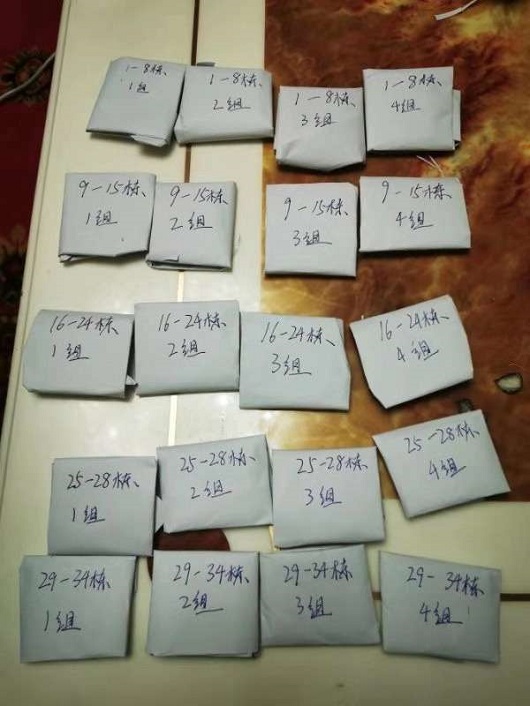 1-8栋、
1组
1-8栋、
2组
1-8栋、
3组
1-8栋、
4组
9-15栋、
1组
9-15栋、
2组
9-15栋、
3组
9-15栋、
4组
16-24栋、
1组
16-24栋、
2组
16-24栋、
3组
16-24栋、
4组
25-28栋、
1组
25-28栋、
2组
25-28栋、
3组
25-28栋、
4组
29-34栋、
1组
29-34栋、
2组
29-34栋、
3组
29-34栋、
4组